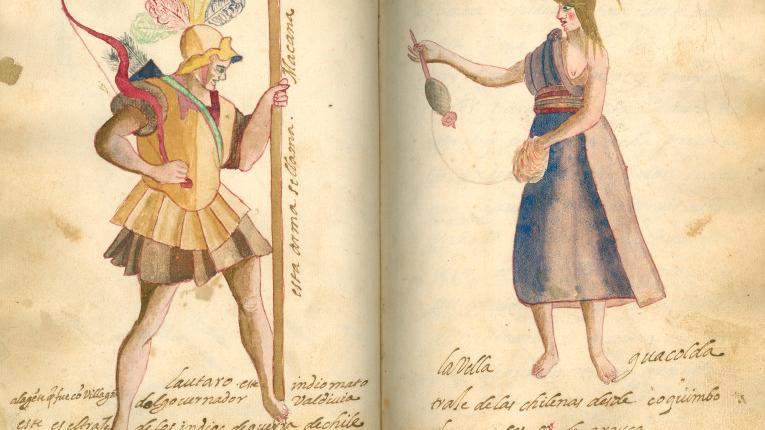 esta arma se llama. Macana
lautaro este indio mato
alagẽte q̃ fue cõ Villagrã del gouernador Valdiuia
este es el traje de los indios de guerra de chile
la Vella guacolda
traje de las chilenas desde coquimbo
de arauco